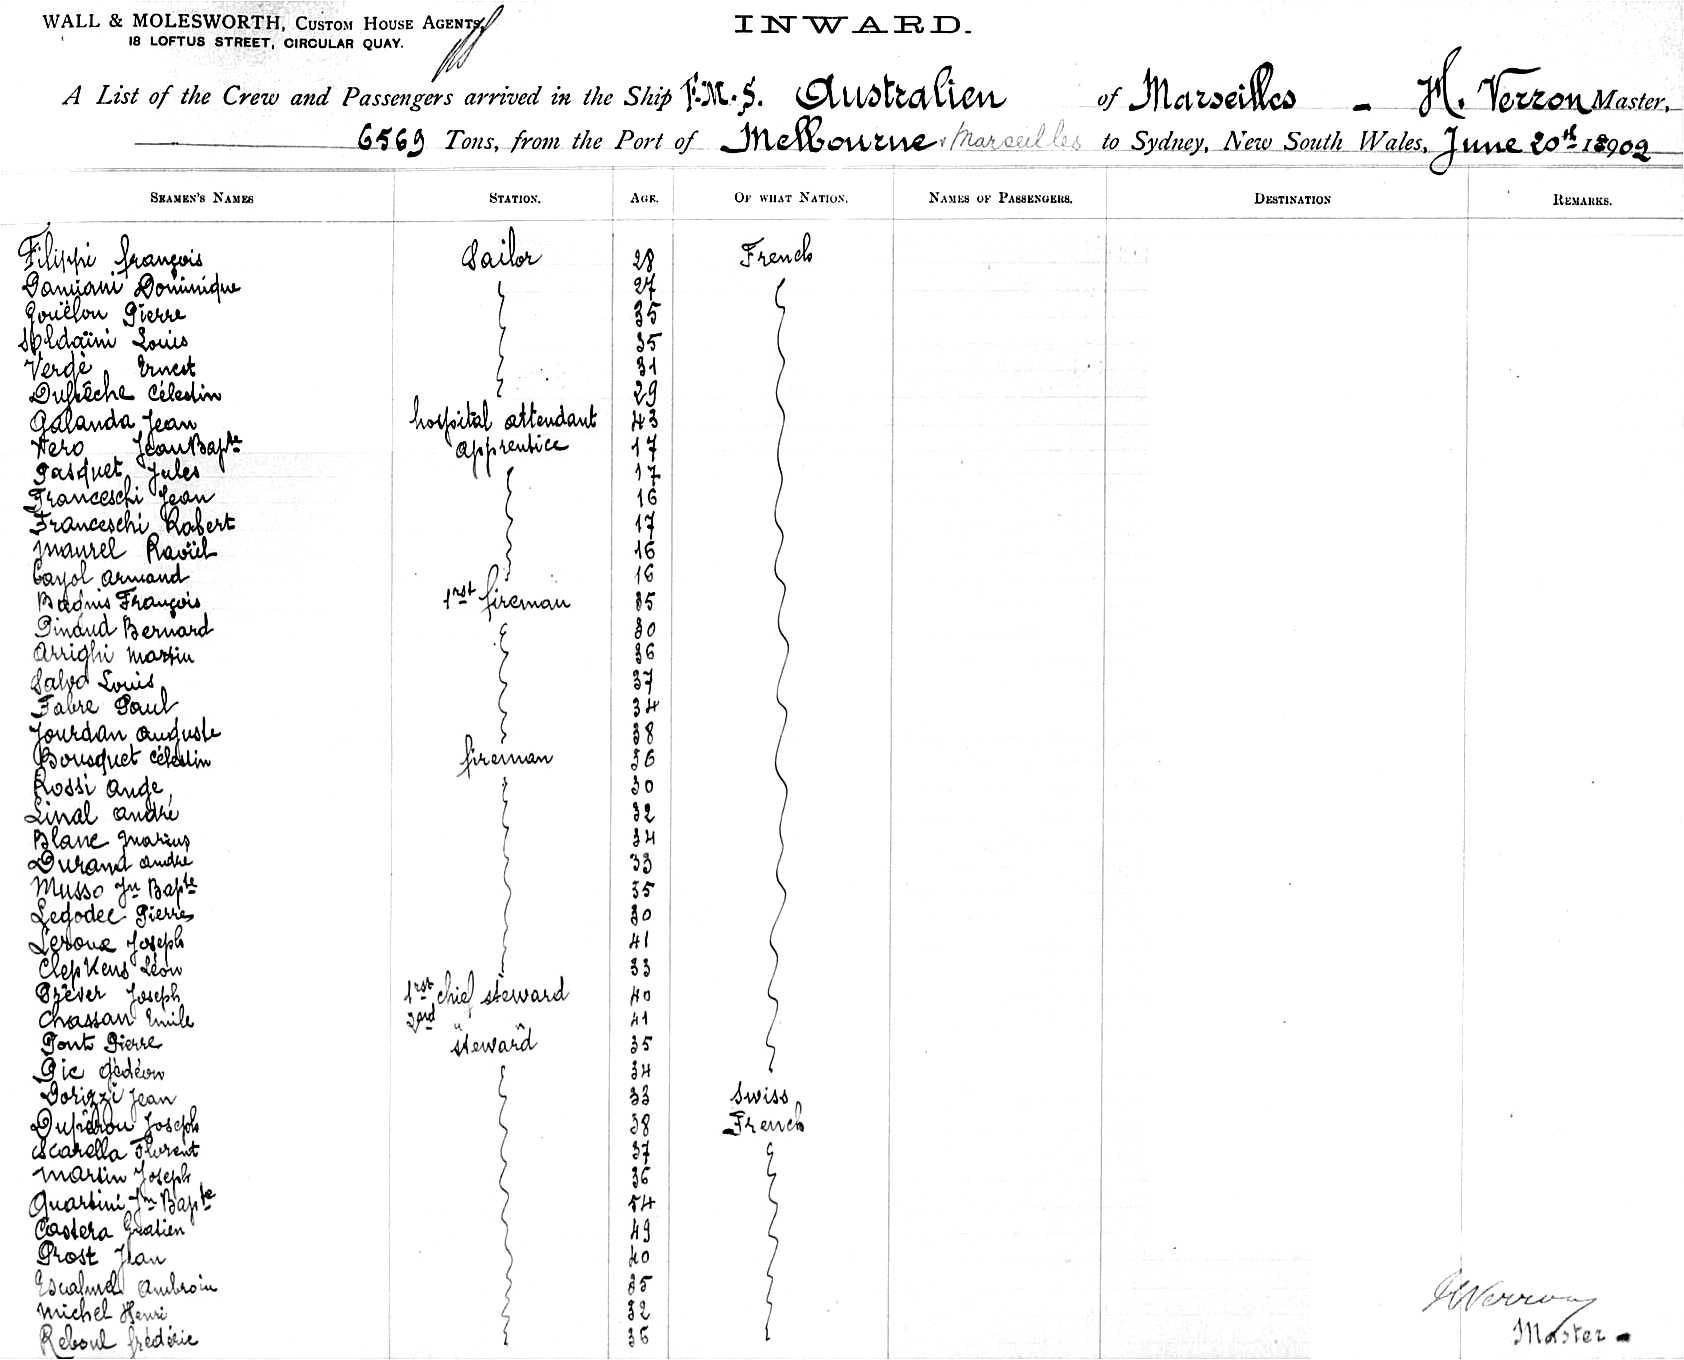 WALL & MOLESWORTH, CUSTOM HOUSE AGENTS,
18 LOFTUS STREET, CIRCULAR QUAY.
INWARD.
A List of the Crew and Passengers arrived in the Ship F.M.S. Australien of Marseilles - H. Verron Master,
6569 Tons, from the Port of Melbourne & Marseilles to Sydney, New South Wales, June 20th 1902
SEAMEN'S NAMES STATION. AGE. OF WHAT NATION. NAMES OF PASSENGERS. DESTINATION REMARKS.
Filippi françois Sailor 28 French
Damiani Dominique 27
Gouëlou Pierre 35
Soldaïni Louis 35
Vergé Ernest 31
Dufrêche Célestin 29
Galanda Jean hospital attendant 43
Hero Jean Bapte apprentice 17
Pasquet Jules 17
Franceschi Jean 16
Franceschi Robert 17
Maurel Raoül 16
Cayol Armand 16
Bagnis François 1rst fireman 35
Pinaud Bernard 30
Arrighi Martin 36
Salvo Louis 37
Fabre Paul 34
Jourdan Auguste 38
Bousquet Célestin fireman 36
Rossi Ange 30
Linal André 32
Blanc Marius 34
Durand André 33
Musso Jn Bapte 35
Legodec Pierre 30
Leroux Joseph 41
Clepkens Léon 33
Prêver Joseph 1rst chief steward 40
Chassan Emile 3rd " " 41
Pont Pierre steward 35
Pic Gédéon 34
Dorizzi Jean 33 Swiss
Dupérou Joseph 38 French
Scarella Florent 37
Martin Joseph 36
Quartini Jn Bapte 54
Castera Gratien 49
Prost Jean 40
Ambroin 35
Michel Henri 32
Reboul frédéric 36
H Verron
Master -